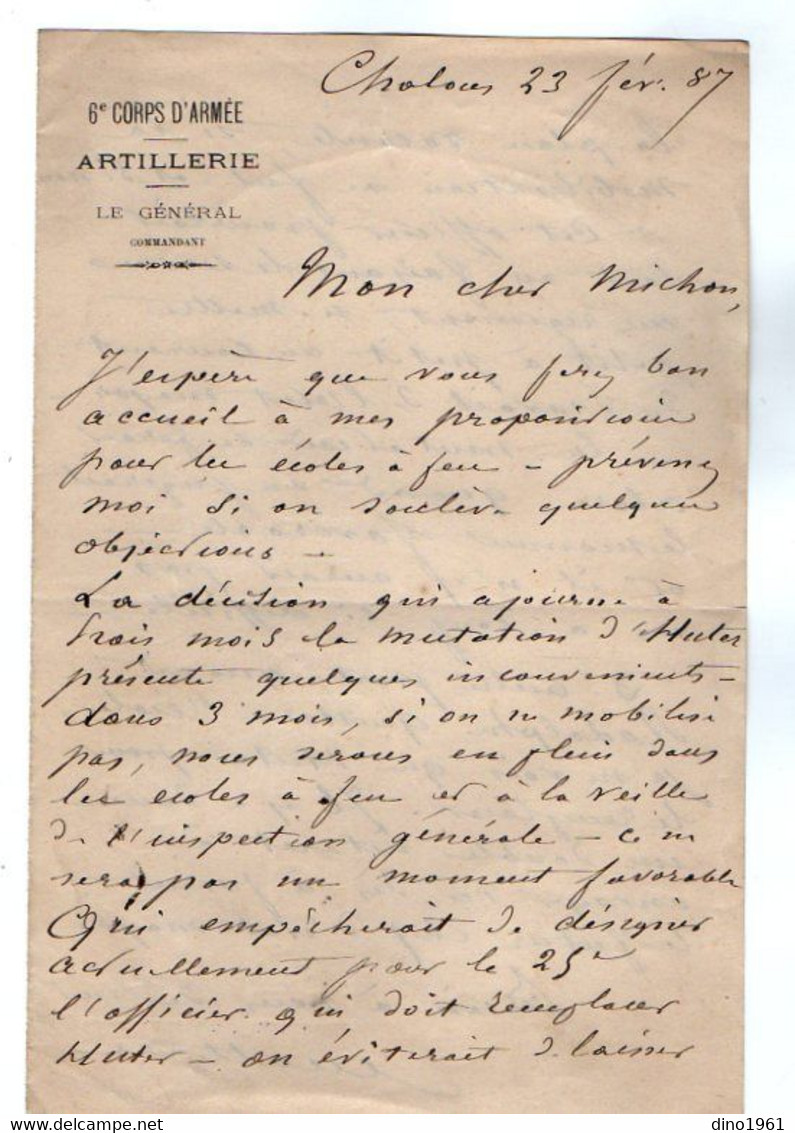 Chalons 23 fév. 87
6e CORPS D'ARMÉE
ARTILLERIE
LE GÉNÉRAL
COMMANDANT
Mon cher Michon,
J'espère que vous ferez bon
accueil à mes propositions
pour les écoles à feu – prévenez
moi si on soulève quelques
objections –
La décision qui ajourne à
trois mois la mutation d'Huter
présente quelques inconvenients –
dans 3 mois, si on ne mobilise
pas, nous serons en plein dans
les ecoles à feu et à la veille
de l'inspection générale – ce ne
sera pas un moment favorable
Qui empêcherait de désigner
actuellement pour le 25e
l'officier qui doit remplacer
Huter – on éviterait de laisser
dino1961